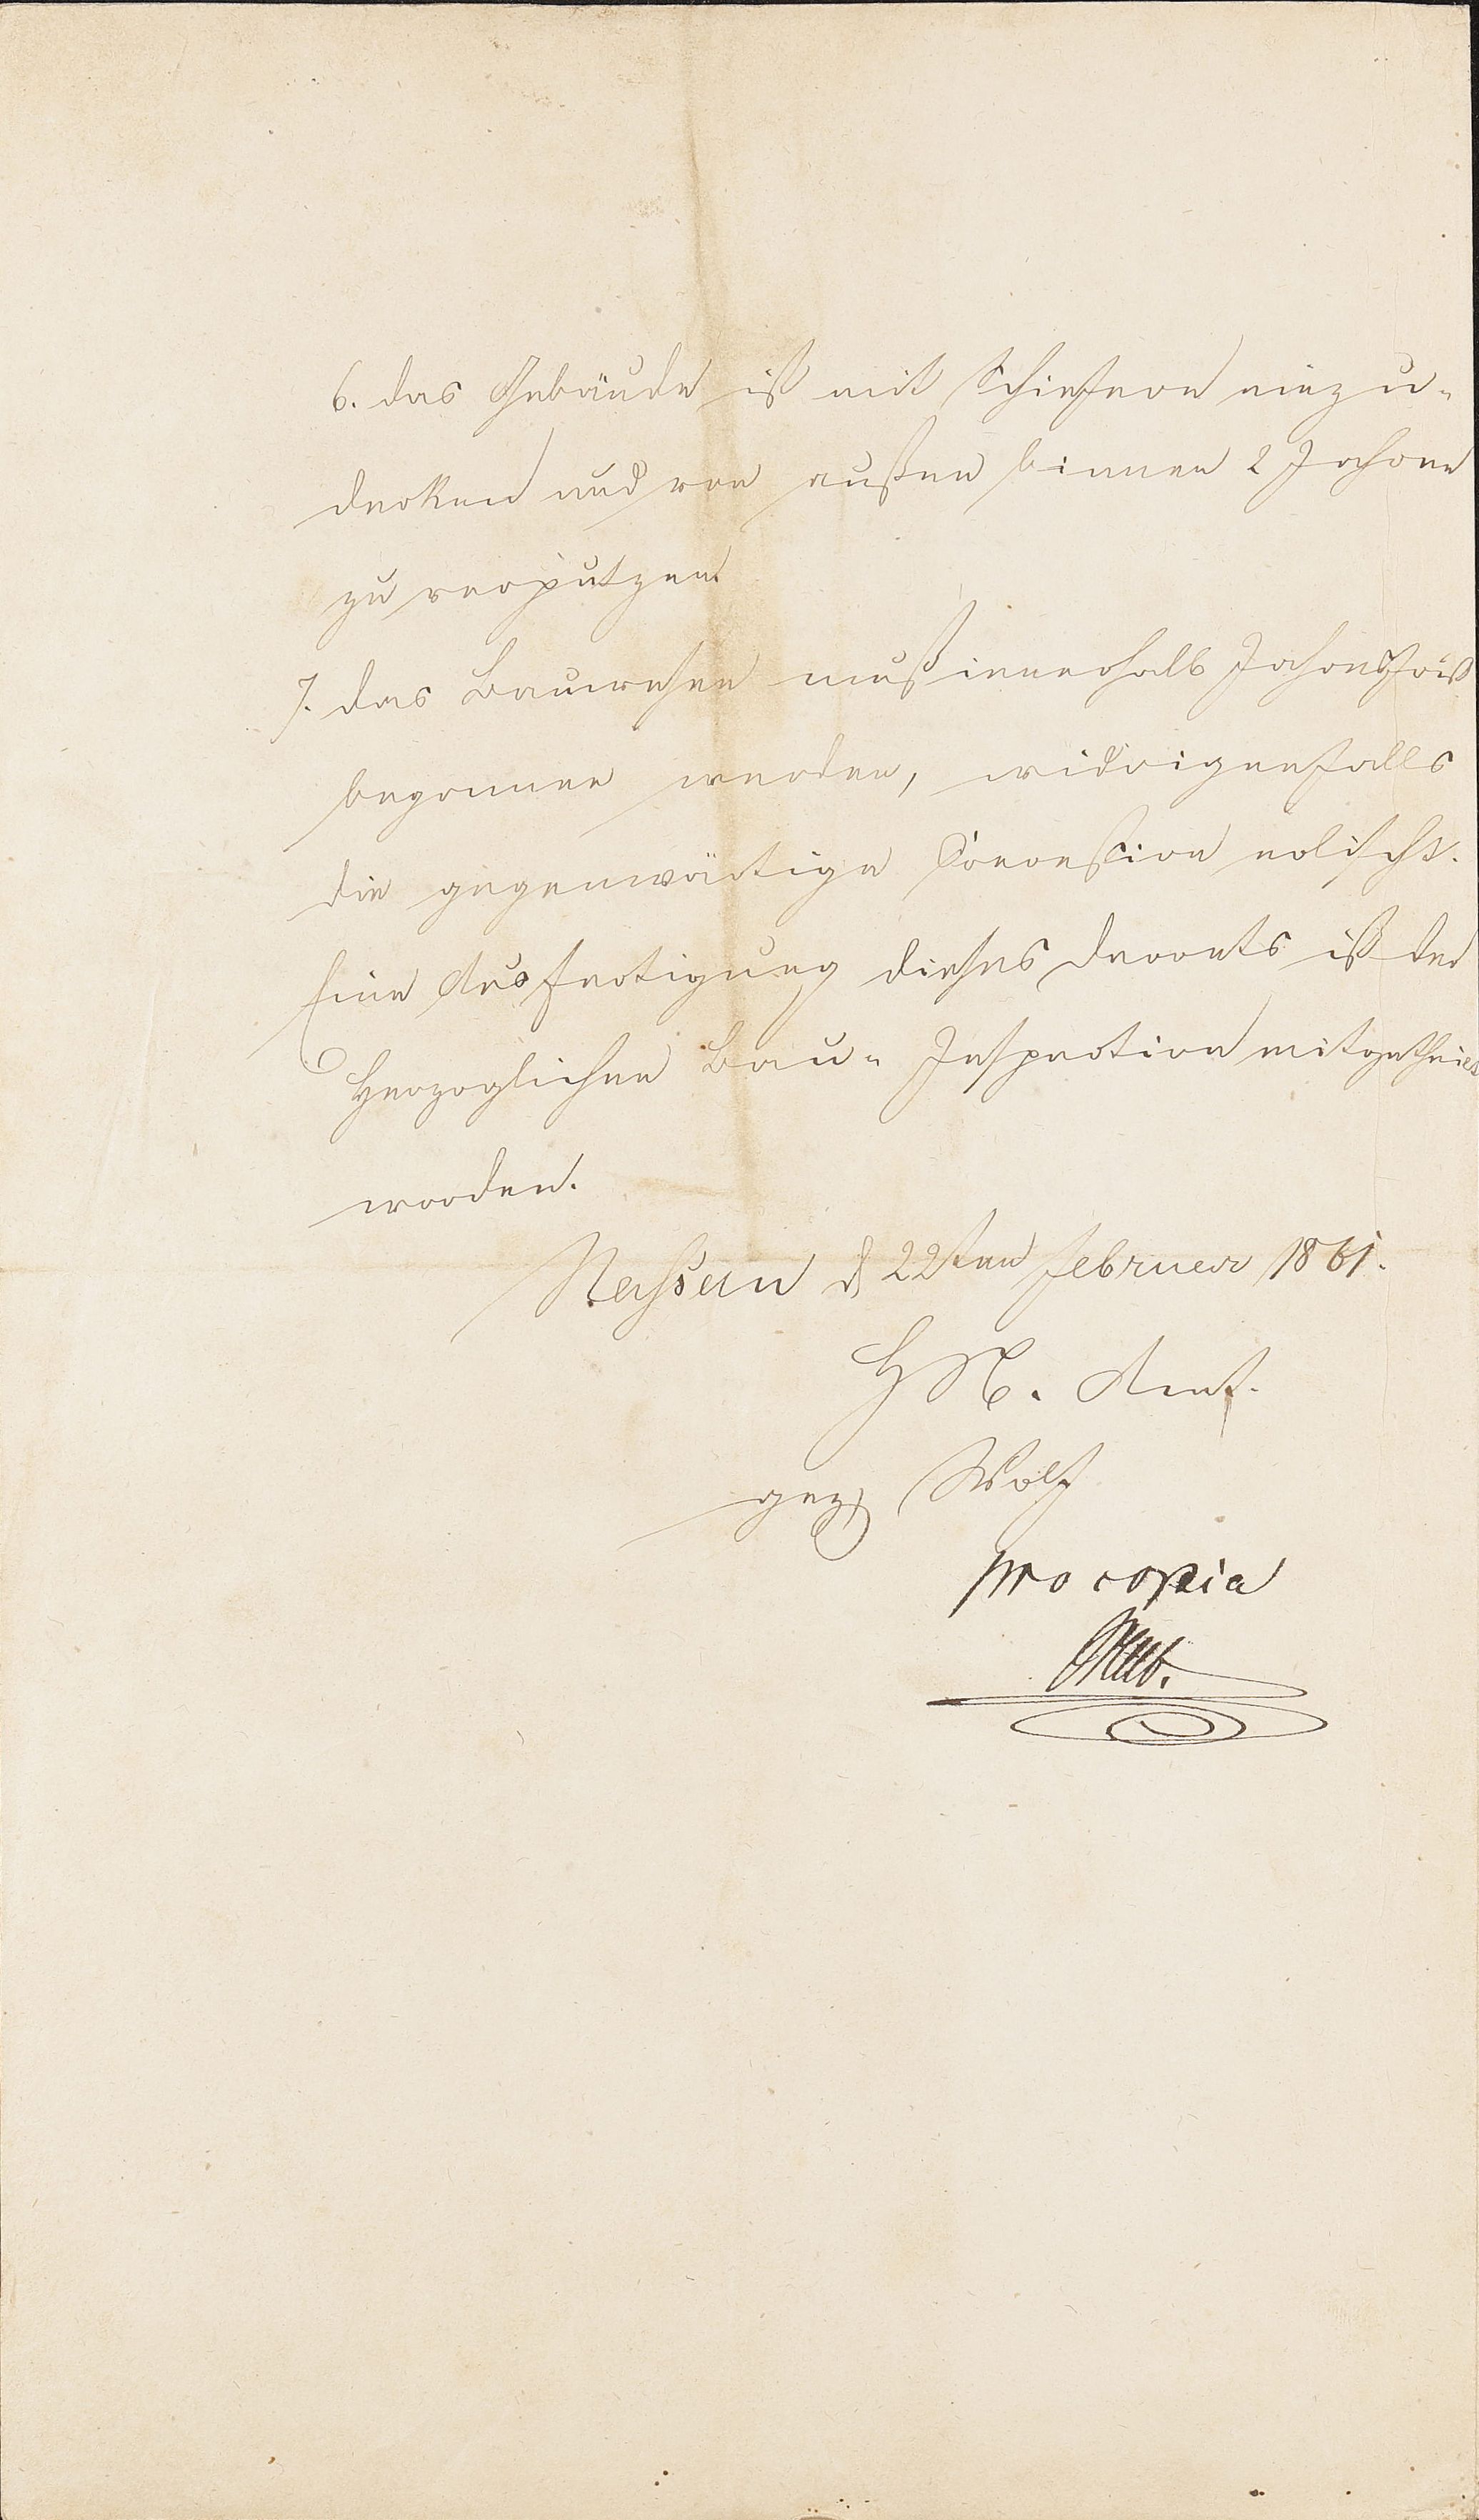 6. das Gebäude ist mit Schiefern einzu-
decken und von außen binnen 2 Jahren
zu verputzen
7. das Bauwesen muß innerhalb Jahresfrist
begonnen werden, widrigenfalls
die gegenwärtige Concession erlischt.
Eine Ausfertigung dieses Decrets ist der
Herzoglichen Bau-Inspection mitgetheilt
worden.
Nassau d 22ten Februar 1861.
H N. Amt.
gez Wolf
pro copia